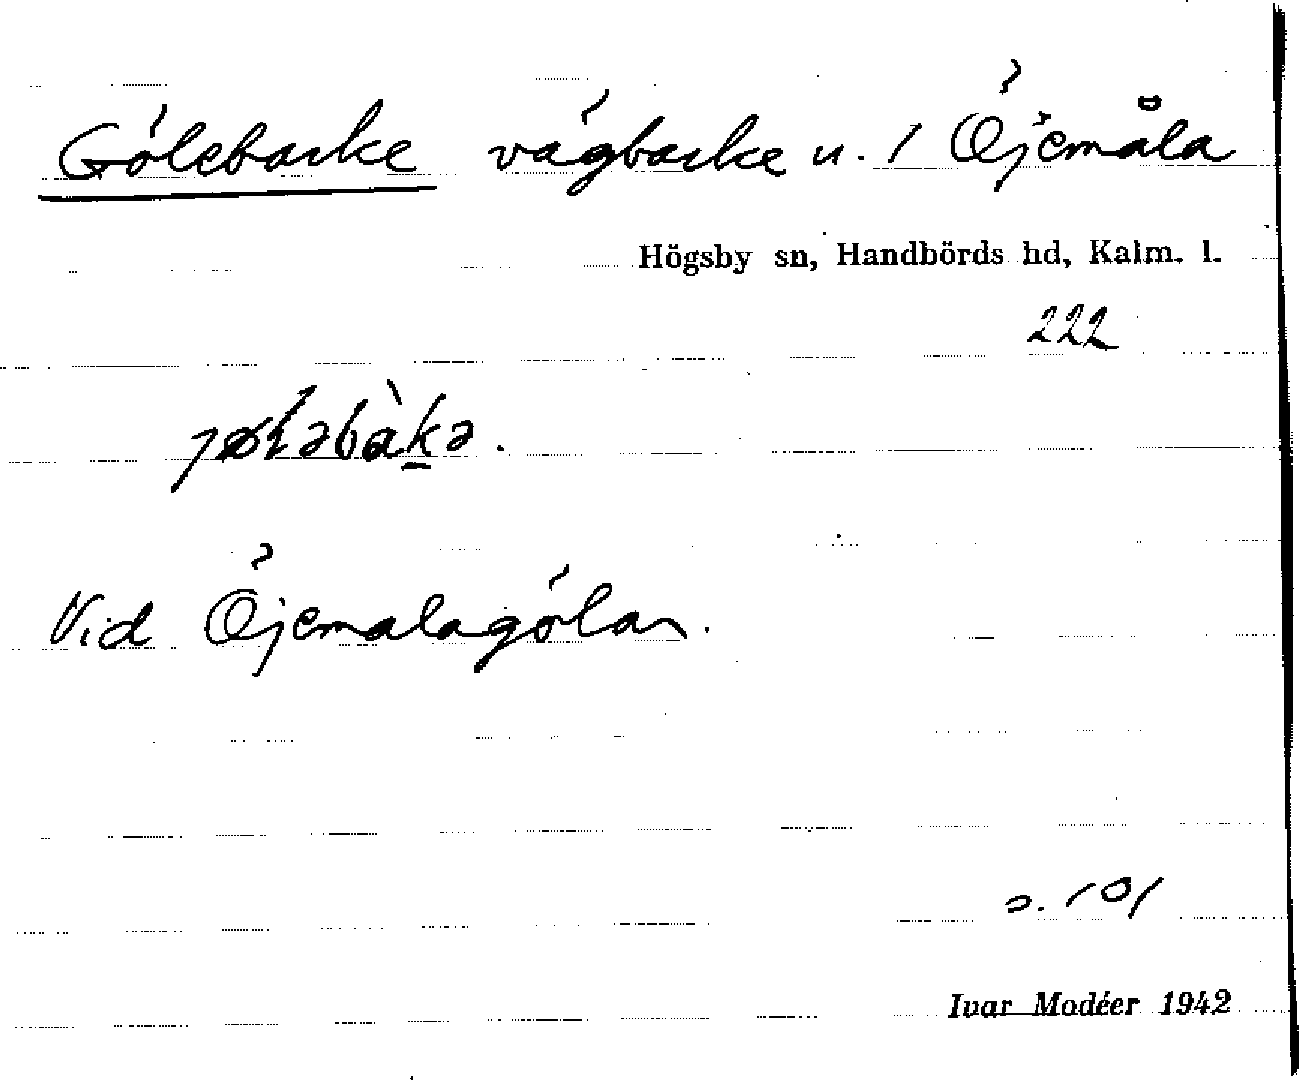 Gölebacke vägbacke u. 1 Öjemåla
Högsby sn, Handbörds hd, Kalm. l.
222
Vid Öjemålagölan.
s. 101
Ivar Modéer 1942